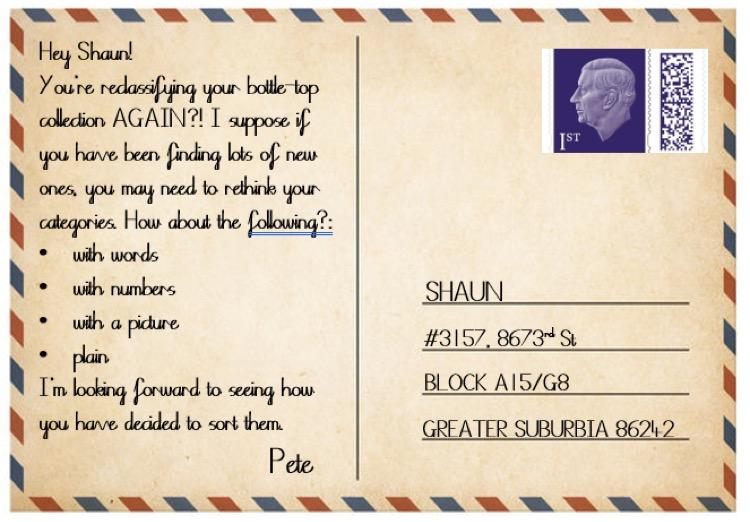 Hey Shaun!
You're reclassifying your bottle-top
collection AGAIN?! I suppose if
you have been finding lots of new
ones, you may need to rethink your
categories. How about the following?:
• with words
• with numbers
• with a picture
• plain
I'm looking forward to seeing how
you have decided to sort them.
Pete
1ST
SHAUN
#3157, 8673rd St
BLOCK A15/G8
GREATER SUBURBIA 86242